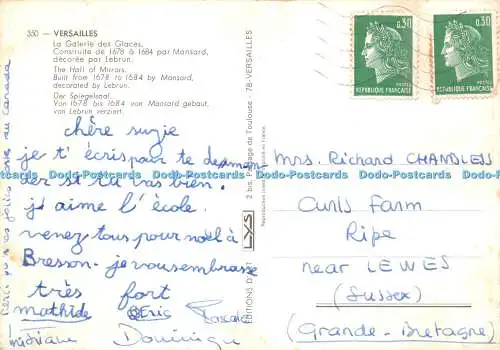 350 - VERSAILLES
La Galerie des Glaces.
Construite de 1678 à 1684 par Mansard,
décorée par Lebrun.
The Hall of Mirrors.
Built from 1678 to 1684 by Mansard,
decorated by Lebrun.
Der Spiegelsaal.
Von 1678 bis 1684 von Mansard gebaut,
von Lebrun verziert.
chère suzie
je t'écris pour te deman
der si tu vas bien.
j'aime l'école.
venez tous pour noël à
Bresson. je vous embrasse
très fort
mathide Eric Pascale
Dominique
Merci pour tes jolies
au Canada
EDITIONS D'ART LYS
2 bis, Passage de Toulouse - 78-VERSAILLES
0,30
REPUBLIQUE FRANÇAISE
0,30
REPUBLIQUE FRANÇAISE
Mrs. Richard CHANDLESS
Curls Farm
Ripe
near LEWES
(Sussex)
(Grande-Bretagne)
Dodo Postcards Dodo Postcards Dodo Postcards Dodo Postcards